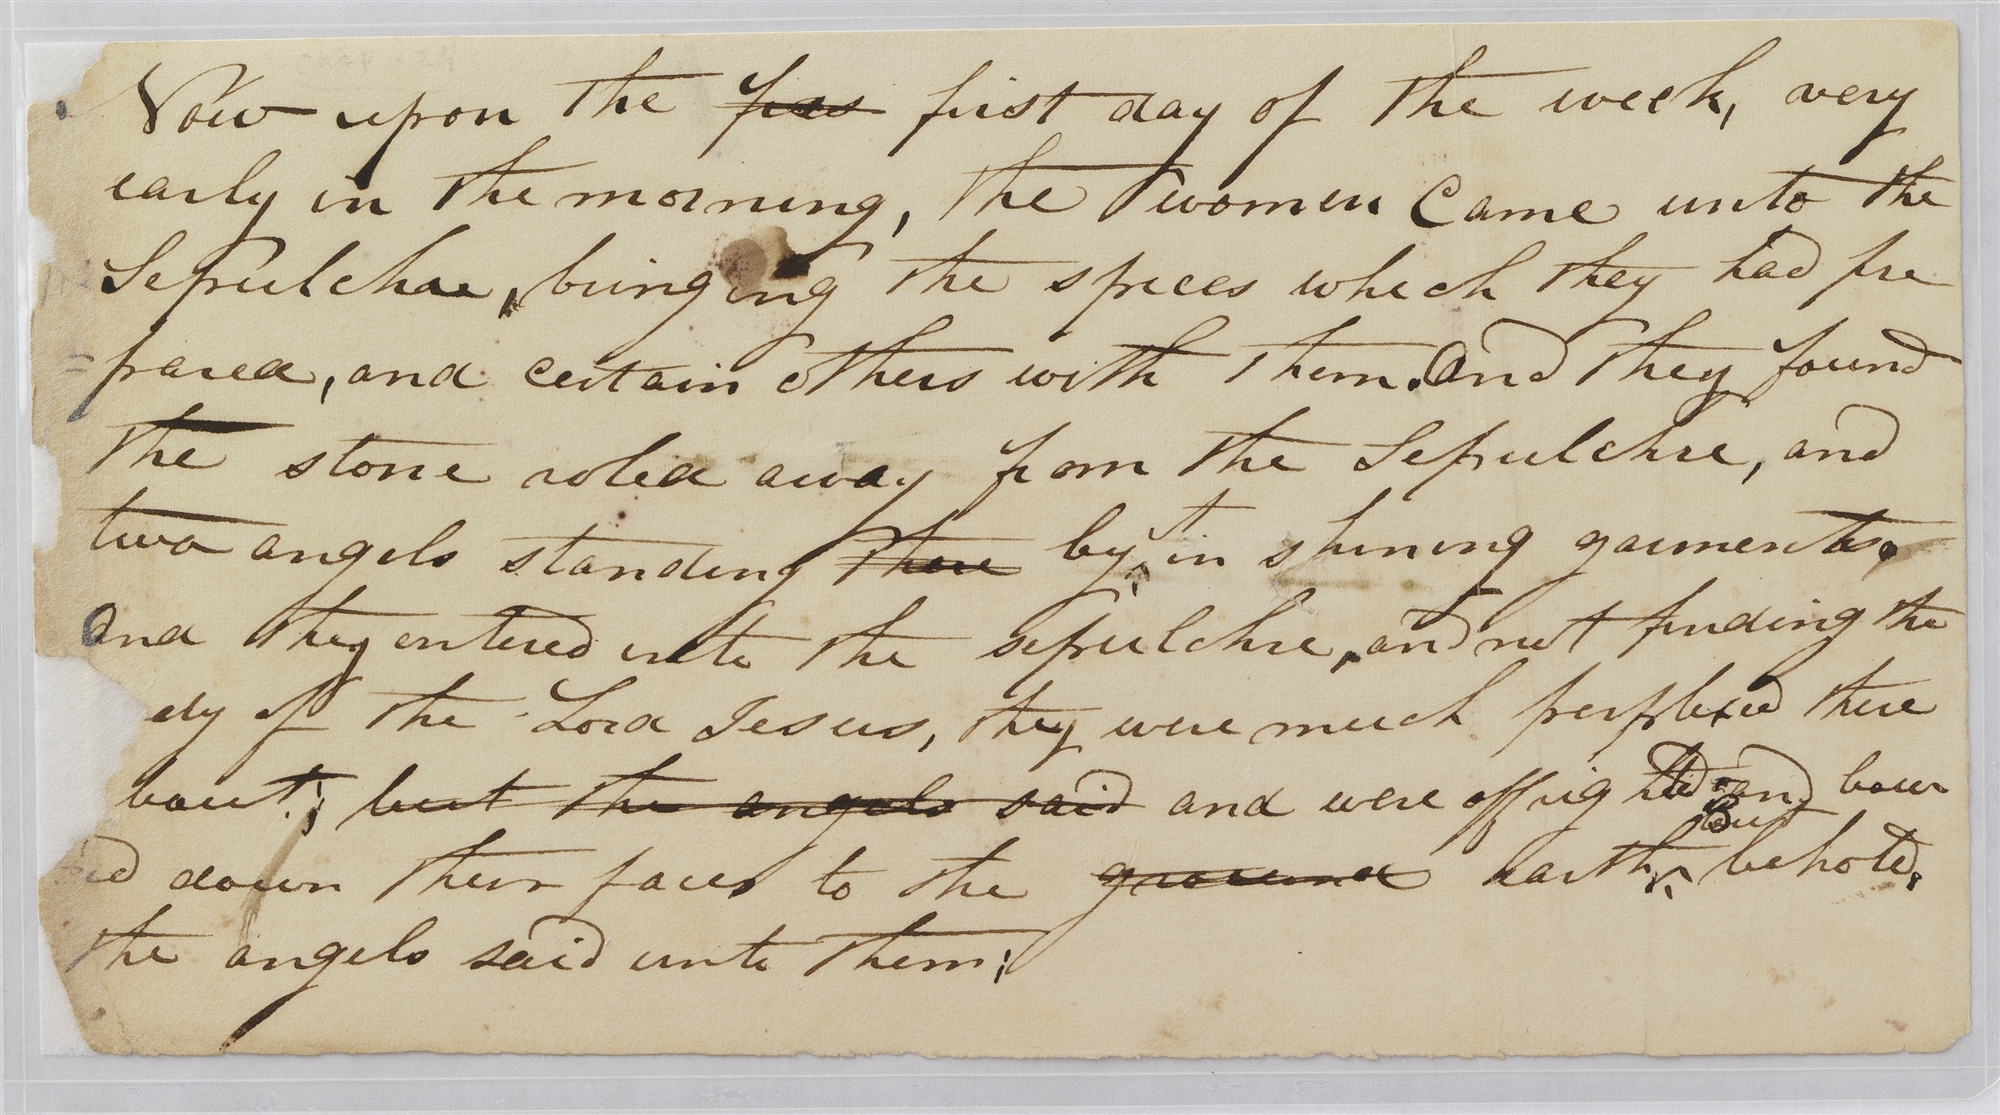 Now upon the firs first day of the week, very
early in the morning, the women Came unto the
Sepulchre, bringing the spices which they had pre
pared, and certain others with them. And they found
the stone roled away from the Sepulchre, and
two angels standing there by, in shining garments.
And they entered into the sepulchre, and not finding the
dy of the Lord Jesus, they were much perplexed there
bout; but the angels said and were affrighted, and bow
But
ed down their faces to the ground earth, behold,
the angels said unto them;